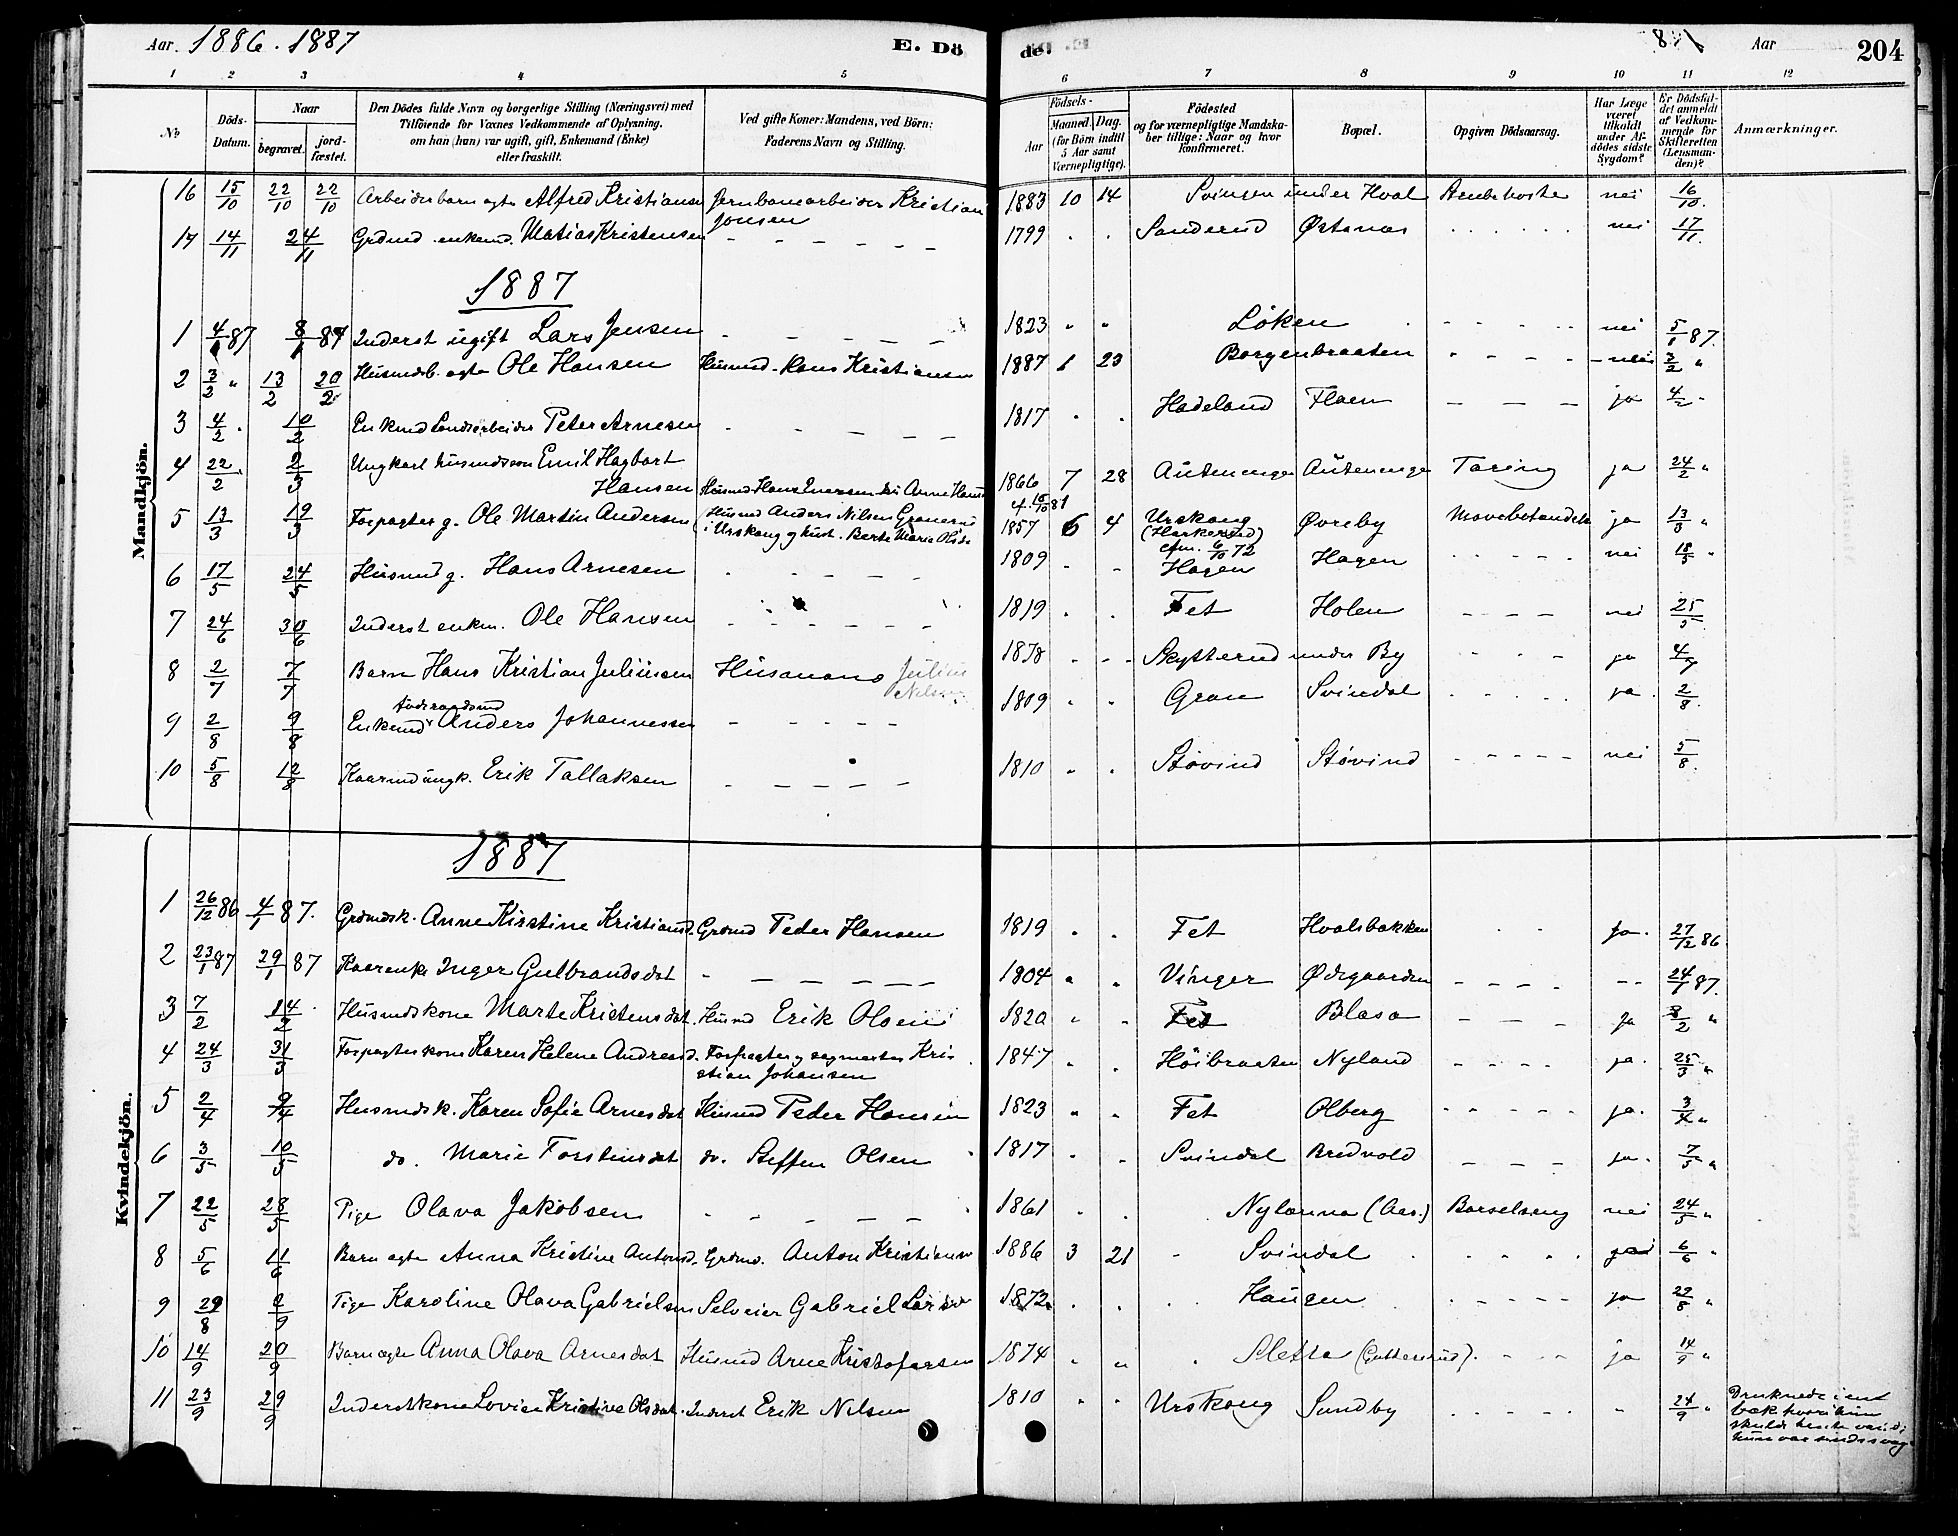 Aar. 1886. 1887 E. Dö
de Aar 204
1 2 3 4 5 6 7 8 9 10 11 12
No Döds-Datum. Naar begravet. jord-fæstet. Den Dödes fulde Navn og borgerlige Stilling (Næringsvei) med Tilföiende for Voxnes Vedkommende af Oplysning, om han (hun) var ugift, gift, Enkemand (Enke) eller fraskilt. Ved gifte Koner: Mandens, ved Börn: Faderens Navn og Stilling. Födsels- Aar Maaned Dag. (for Börn indtil 5 Aar samt Værnepligtige). Födested og for værnepligtige Mandska-ber tillige: Naar og hvor konfirmeret. Bopæl. Opgiven Dödsaarsag. Har Læge været tilkaldt under Af-dödes sidste Sygdom? Er Dödsfal-det anmeldt af Vedkom-mende for Skifteretten (Lensman-den)? Anmærkninger.
Mandkjön.
16 15/10 22/10 22/10 Arbeiderbarn ægte Alfred Kristiansen Jernbanearbeider Kristian Jonsen 1883 10 14 Svingen under Hval Strubehoste nei 16/10.
17 14/11 24/11 Grdmd. enkemd. Matias Kristensen 1799 Sanderud Østenæs nei 17/11.
1887
1 4/1 87 8/1 87 Inderst ugift Lars Jensen 1823 Løken nei 5/1 87.
2 3/2 " 13/2 20/2 Husmdsb. ægte Ole Hansen Husmd. Hans Kristiansen 1887 1 23 Borgenbraaten nei 3/2 "
3 4/2 10/2 Enkemd Landarbeider Peter Arnesen 1817 Hadeland Flaen ja 4/2
4 22/2 2/3 Ungkarl husmdssøn Emil Hagbart Hansen Husmd Hans Iversen Anne Hans 1866 7 28 Autenenga Autenenga Tæring ja 24/2 "
5 13/3 19/3 Forpagter g. Ole Martin Andersen Husmd Anders Nilsen Granerud i Urskoug g hust. Berte Marie Olsd. 1857 6 4 Urskoug (Haskerud) cfm. 6/10 72 Øvreby Mavebetændelse ja 13/3 "
6 17/5 24/5 Husmd g. Hans Arnesen 1809 Hagen Hagen nei 18/5 "
7 24/6 30/6 Inderst enkm. Ole Hansen 1819 Fet Holen nei 25/5
8 2/7 7/7 Barn Hans Kristian Juliusen Husmand Julius Nilsen 1878 Skytterud under By ja 4/7
9 2/8 9/8 Enkemd Føderaadsmd Anders Johannessen 1809 Gran Svindal ja 2/8.
10 5/8 12/8 Kaarmd ungk. Erik Tallaksen 1810 Støvind Støvind nei 5/8.
Kvindekjön.
1887
1 26/12 86 4/1 87. Grdmdsk. Anne Kirstine Kristiansd. Grdmd Peder Hansen 1819 Fet Hvalsbakken ja. 27/12 86.
2 23/1 87 29/1 87 Kaarenke Inger Gulbrandsdat 1804 Vinger Ødegaarden 24/1 87.
3 7/2 14/2 Husmdskone Marte Kristensdat. Husmd Erik Olsen 1820 Fet Blæsa ja 8/2 "
4 24/3 31/3 Forpagterskone Karen Helene Andersd. Forpagter g sagmester Kristian Johansen 1847 Høibraaten Nyland ja. 25/3 "
5 2/4 9/4 Husmdsk. Karen Sofie Arnesdat Husmd Peder Hansen 1823 Fet Olberg ja. 3/4 "
6 3/5 10/5 do. Marie Torstensdat do. Steffen Olsen 1817 Svindal Bredvold ja. 7/5 "
7 22/5 28/5 Pige Olava Jakobsen 1861 Nylænna (Aas.) Barselseng nei 24/5 "
8 5/6 11/6 Barn ægte Anna Kristine Antonsd. Grdmd. Anton Kristiansen 1886 3 21 Svindal 6/6 "
9 29/8 2/9 Pige Karoline Olava Gabrielsen Selveier Gabriel Larsen 1872 Haugen ja 22/8 "
10 14/9 20/9 Barn ægte Anna Olava Arnesdat Husmd Arne Kristofersen 1874 Sletta (Guttersrud). ja 14/9 "
11 23/9 29/9 Inderstkone Lovise Kristine Olsdat. Inderst Erik Nilsen 1810 Urskoug Sundby 24/9 " Druknede i en bæk hvori hun skulde hente vand; hun var sindssvag